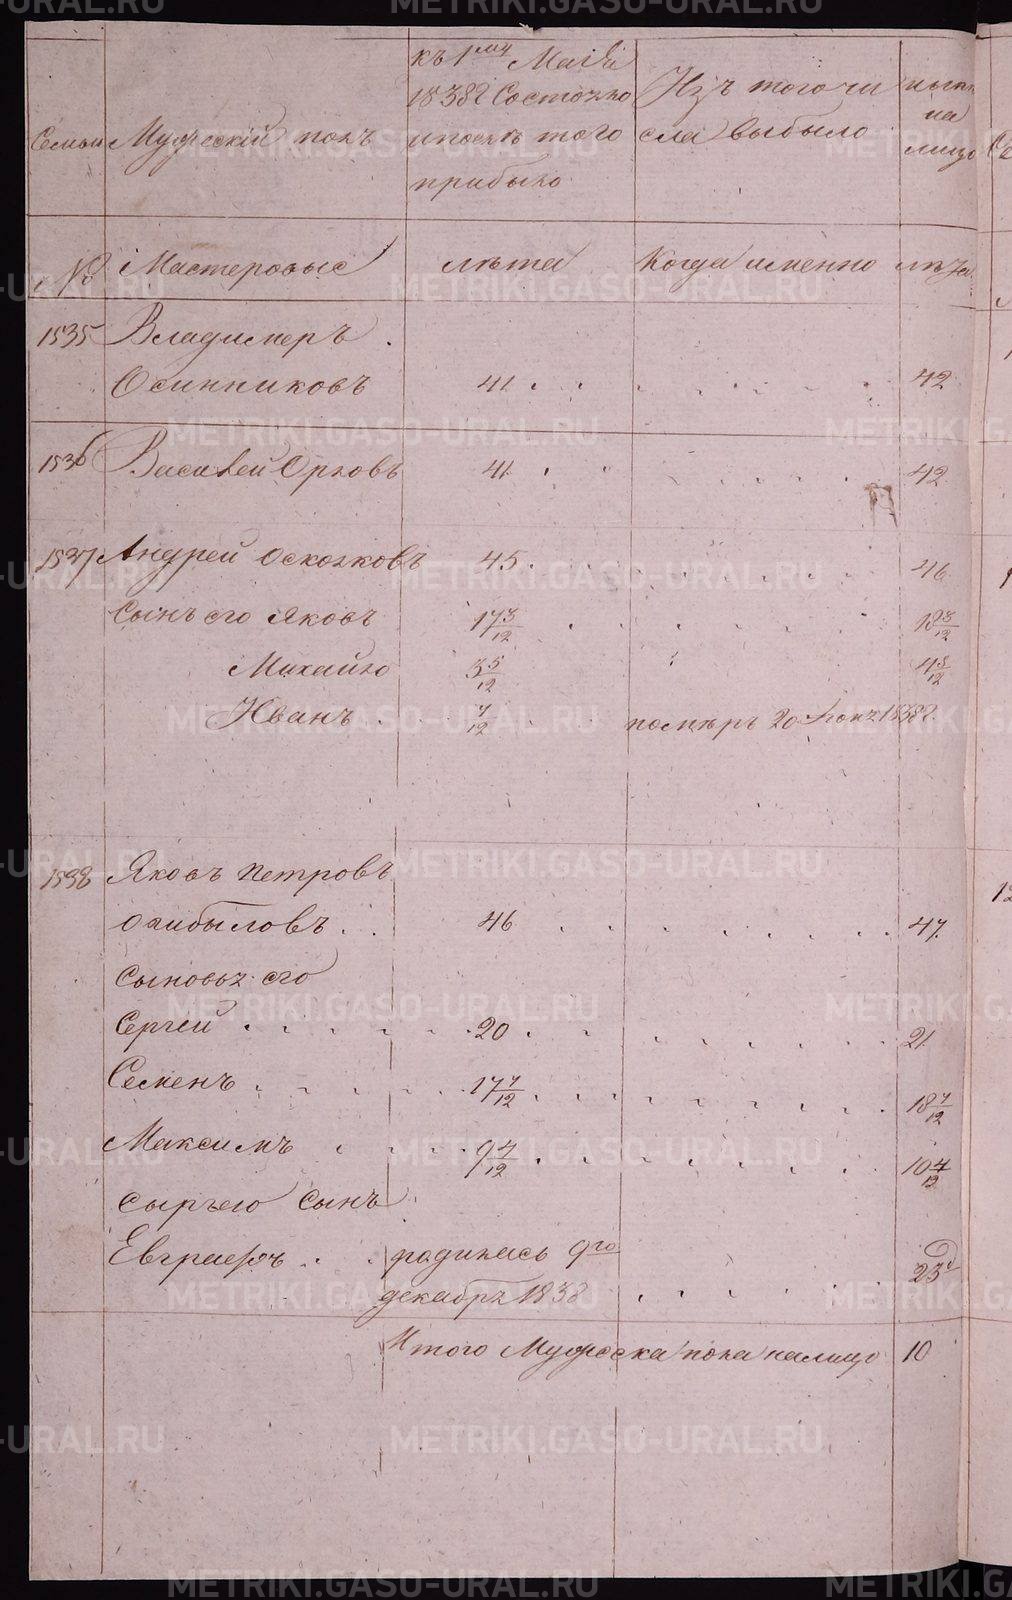 къ 1му Маія
1838г Состояло
и послѣ того
прибыло
Изъ того чи
сла выбыло
на
лицо
Семьи Мужескій полъ
№ Мастеровые лѣта Когда именно лѣта
1535 Владимеръ
Осинниковъ 41 42
1536 Василей Орловъ 41 42
1537 Андрей Осколковъ 45 46
Сынъ его Яковъ 17 3/12 18 3/12
Михайло 3 5/12 4 5/12
Иванъ 7/12 померъ 20 1838г.
1538 Яковъ Петровъ
46 47
Сыновья его
Сергей 20 21
Семенъ 17 7/12 18 7/12
Максимъ 9 4/12 10 4/12
Сынъ
Евграфъ родился 9го
декабря 1838 23
Итого Мужеска пола налицо 10
METRIKI.GASO-URAL.RU